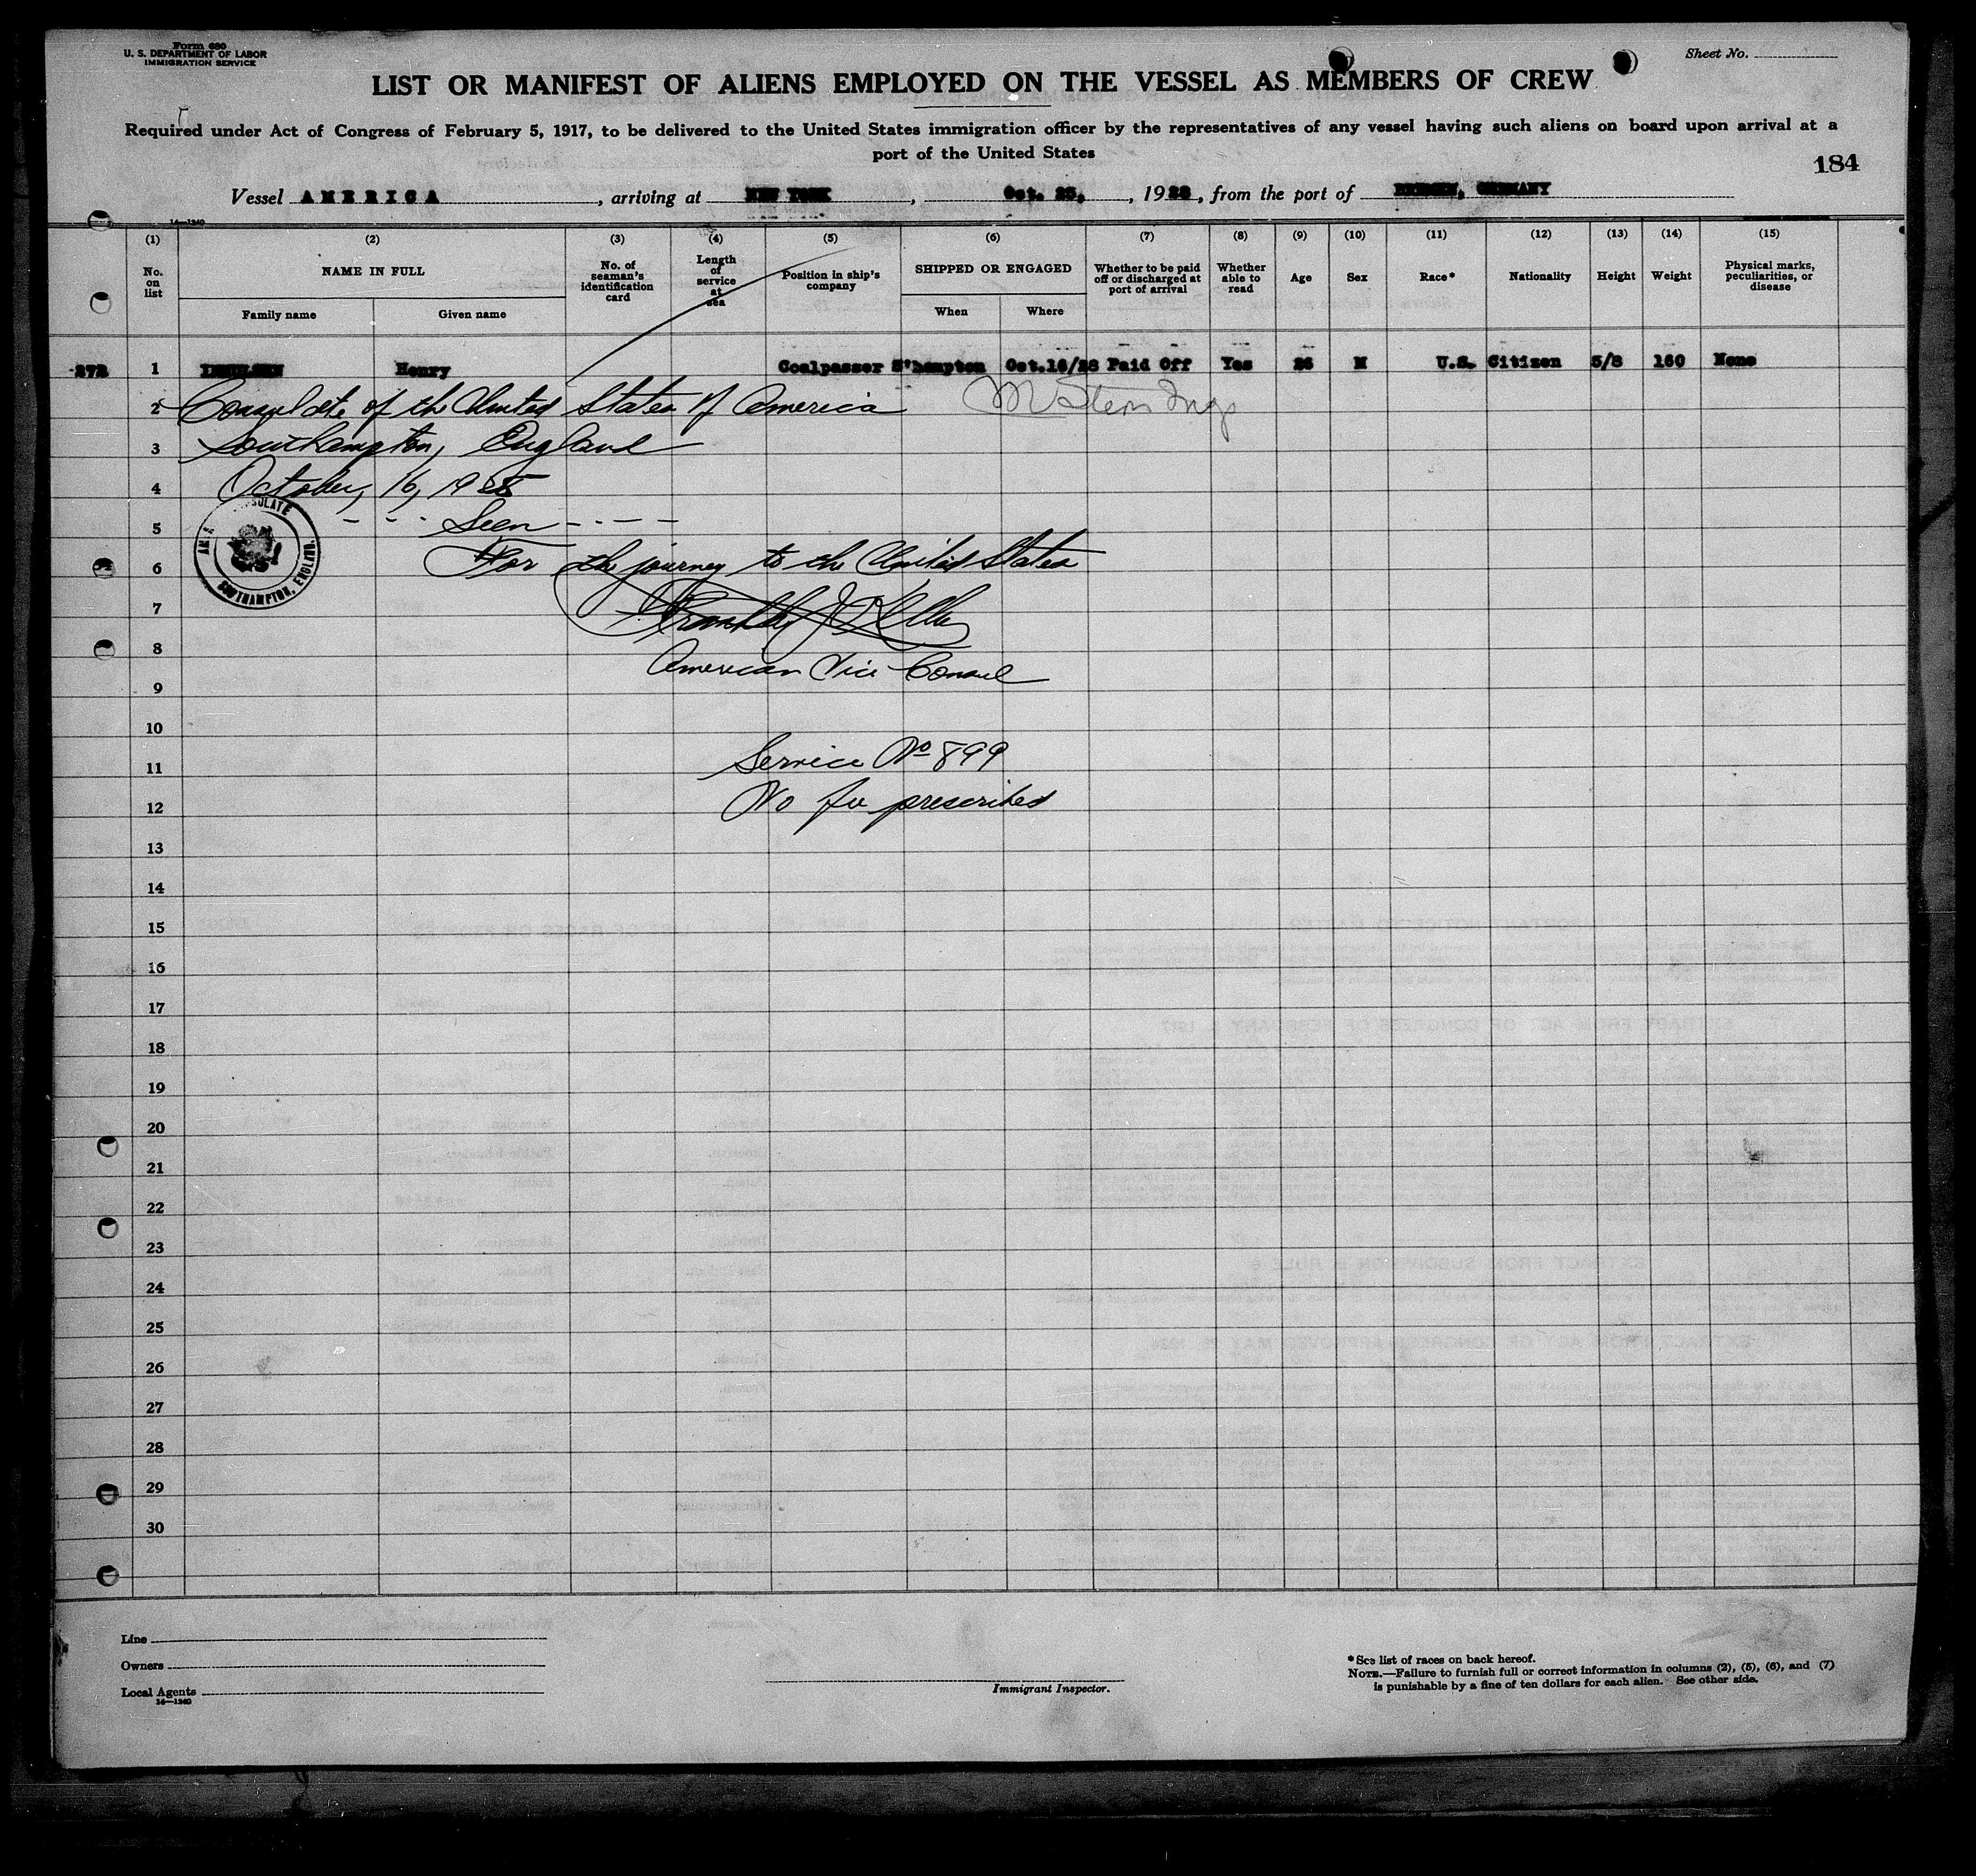 Form 680
U. S. DEPARTMENT OF LABOR
IMMIGRATION SERVICE
Sheet No.
LIST OR MANIFEST OF ALIENS EMPLOYED ON THE VESSEL AS MEMBERS OF CREW
Required under Act of Congress of February 5, 1917, to be delivered to the United States immigration officer by the representatives of any vessel having such aliens on board upon arrival at a
port of the United States
184
Vessel AMERICA, arriving at NEW YORK, Oct. 25, 1928, from the port of BREMEN, GERMANY
14—1240
(1) (2) (3) (4) (5) (6) (7) (8) (9) (10) (11) (12) (13) (14) (15)
No. on list
NAME IN FULL
Family name
Given name
No. of seaman's identification card
Length of service at sea
Position in ship's company
SHIPPED OR ENGAGED
When
Where
Whether to be paid off or discharged at port of arrival
Whether able to read
Age
Sex
Race*
Nationality
Height
Weight
Physical marks, peculiarities, or disease
272 1 Henry Coalpasser S'hampton Oct.16/28 Paid Off Yes 26 M U.S. Citizen 5/8 160 None
2 Consulate of the United States of America
3 Southampton, England
4 October, 16, 1928
5 - - - Seen - - - -
6 For the journey to the United States
7
8
9 American Vice Consul
10
11 Service No 899
12 No fee prescribed
13
14
15
16
17
18
19
20
21
22
23
24
25
26
27
28
29
30
SOUTHAMPTON, ENGLAND.
Line
Owners
Local Agents
14—1240
Immigrant Inspector.
*See list of races on back hereof.
NOTE.—Failure to furnish full or correct information in columns (2), (5), (6), and (7)
is punishable by a fine of ten dollars for each alien. See other side.